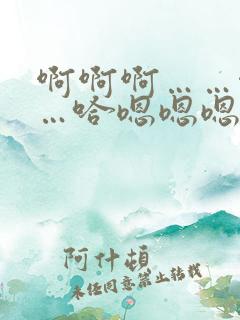 啊啊啊……
…哈嗯嗯嗯
阿什顿
未经同意禁止转载